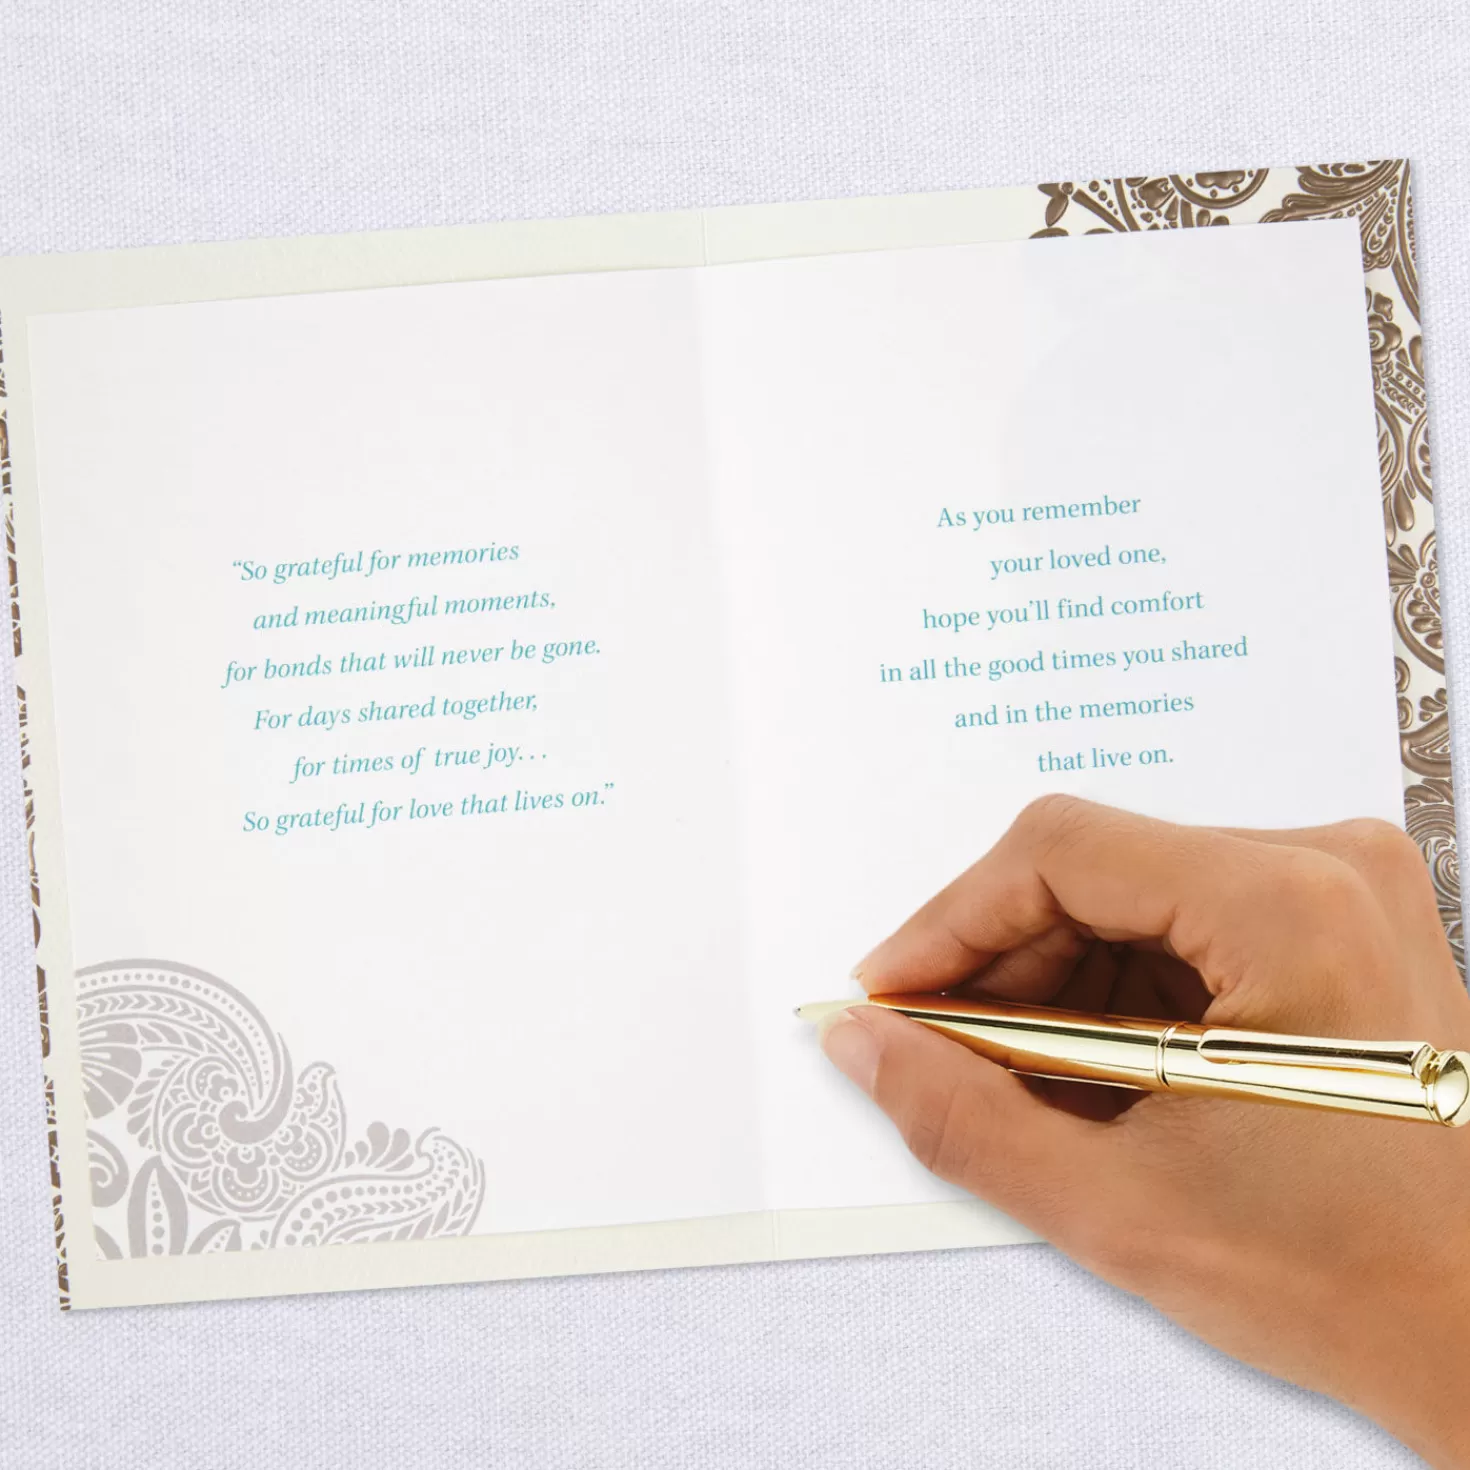 “So grateful for memories
and meaningful moments,
for bonds that will never be gone.
For days shared together,
for times of true joy. . .
So grateful for love that lives on.”
As you remember
your loved one,
hope you’ll find comfort
in all the good times you shared
and in the memories
that live on.